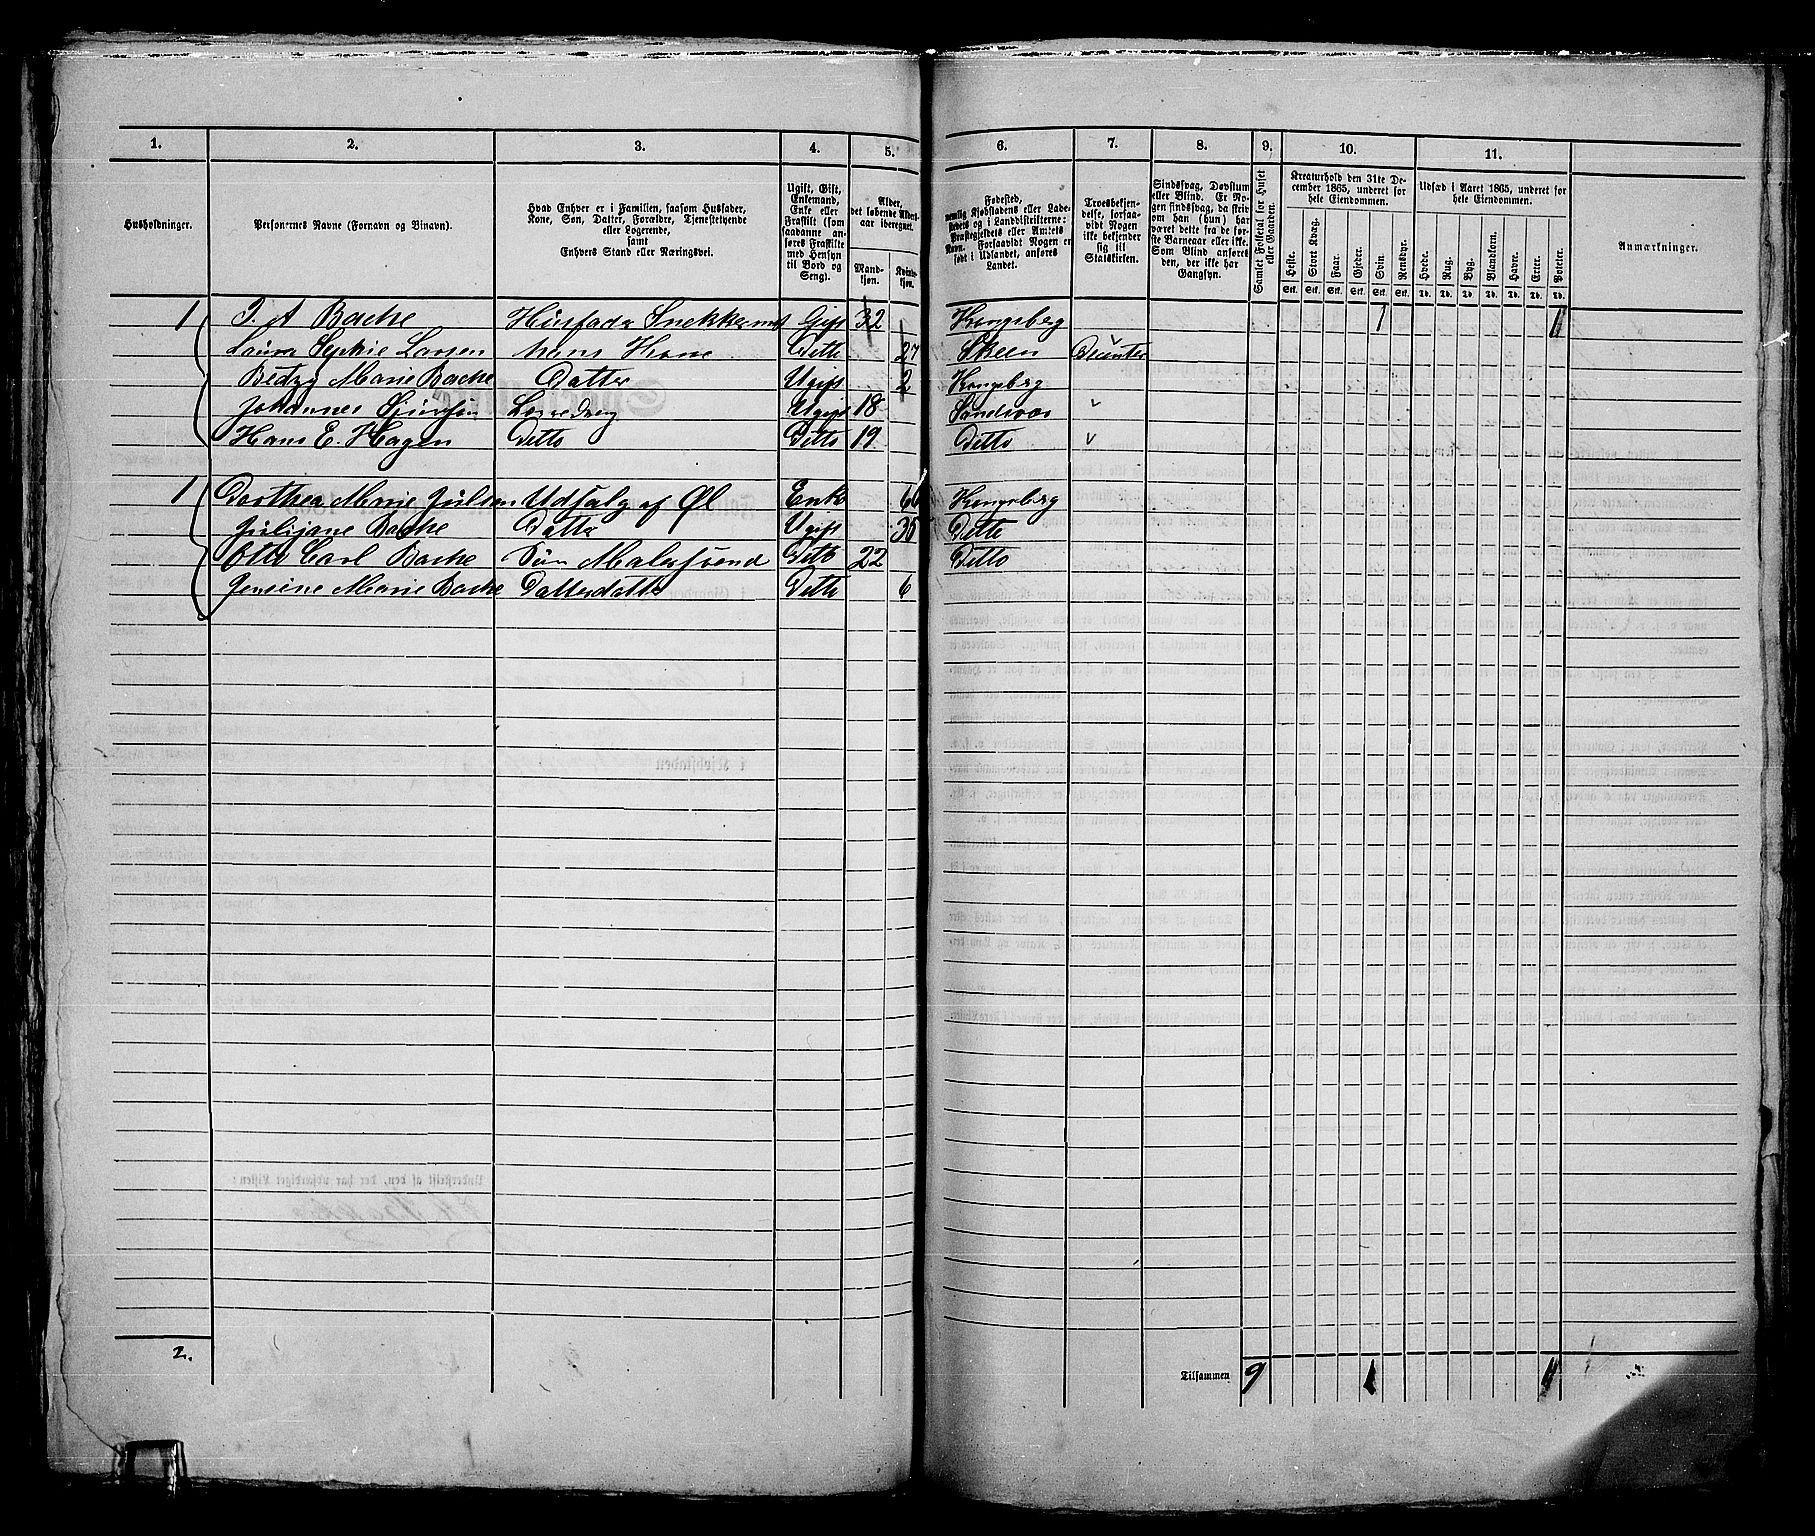 1. 2. 3. 4. 5. 6. 7. 8. 9. 10. 11.
Husholdninger.
Personernes Navne (Fornavn og Binavn).
Hvad Enhver er i Familien, saasom Husfader,
Kone, Søn, Datter, Forældre, Tjenestetyende
eller Logerende,
samt
Enhvers Stand eller Næringsvei.
Ugift, Gift,
Enkemand,
Enke eller
Fraskilt (som
saadanne an-
føres Fraskilte
med Hensyn
til Bord og
Seng).
Alder,
det løbende Alders-
aar iberegnet.
Mand-
kjøn.
Kvinde-
kjøn.
Fødested,
nemlig Kjøbstadens eller Lade-
stedets og i Landdistrikterne:
Præstegjeldets eller Amtets
Navn. Forsaavidt Nogen er
født i Udlandet, anføres
Landet.
Troesbekjen-
delse, forsaa-
vidt Nogen
ikke bekjender
sig til
Statskirken.
Sindssvag, Døvstum
eller Blind. Er No-
gen sindssvag, da skriv
om han (hun) har
været dette fra de før-
ste Barneaar eller ikke.
Som Blind anføres
den, der ikke har
Gangsyn.
Samlet Folketal for Huset
eller Gaarden.
Kreaturhold den 31te De-
cember 1865, underet for
hele Eiendommen.
Heste. Stort Kvæg. Faar. Gjeder. Svin. Rensdyr.
Stk. Stk. Stk. Stk. Stk. Stk.
Udsæd i Aaret 1865, underet for
hele Eiendommen.
Hvede. Rug. Byg. Blandkorn. Havre. Erter. Poteter.
Td. Td. Td. Td. Td. Td. Td.
Anmærkninger.
1 J. A Bache Husfader Gift 32 Kongsberg 1 1
Laura Sophie Larsen hans Kone Ditto 27 Skeen
Betzy Marie Bache Datter Ugift 2 Kongsberg
Johannes Ugift 18 Sandsvær
Hans E. Hagen Ditto Ditto 19 Ditto
1 Dorthea Marie Julsen Udsalg af Øl Enke Kongsberg
Julijane Bache Datter Ugift 35 Ditto
Otto Carl Bache Søn Malersvend Ditto 22 Ditto
Jensine Marie Bache Datterdatter Ditto 6
2.
Tilsammen 9 1 1